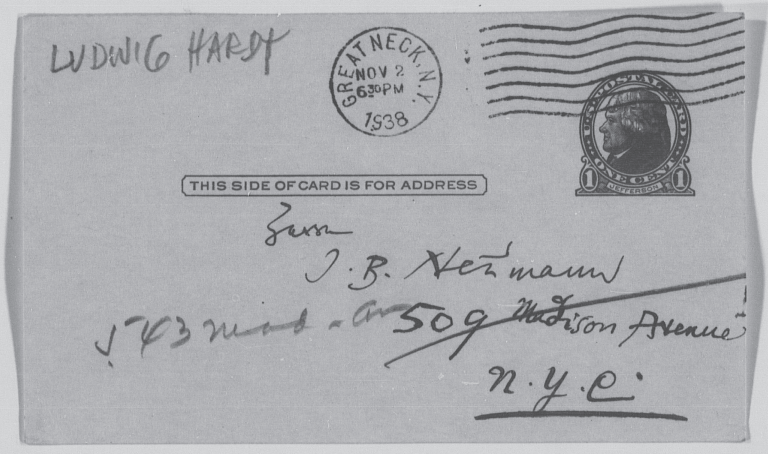 LUDWIG HARDT
GREAT NECK, N.Y.
NOV 2
6 30 PM
1938
U.S. POSTAL CARD
ONE CENT
1 JEFFERSON 1
THIS SIDE OF CARD IS FOR ADDRESS
Herrn
J. B. Neumann
543 mad. av
509 Madison Avenue
N.Y.C.